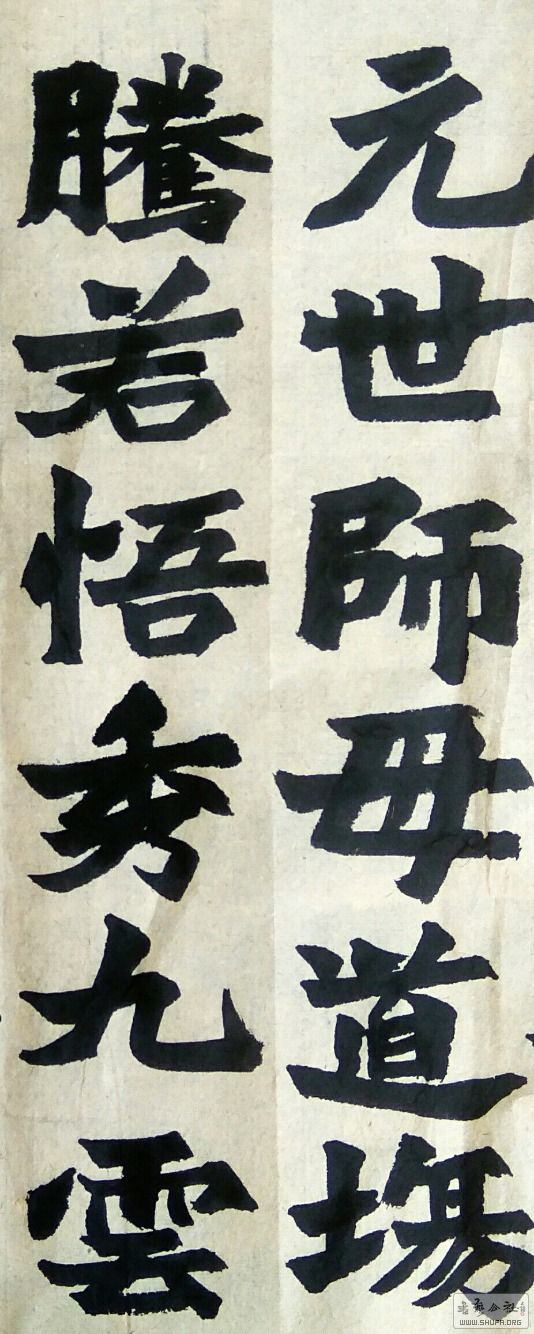 元世師母道場
騰若悟秀九雲
WWW.SHUFA.ORG